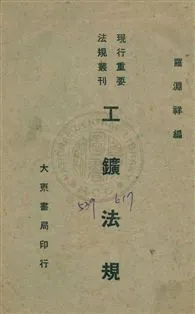 羅淵祥編
現行重要
法規叢刊
工鑛法規
539 617
大東書局印行